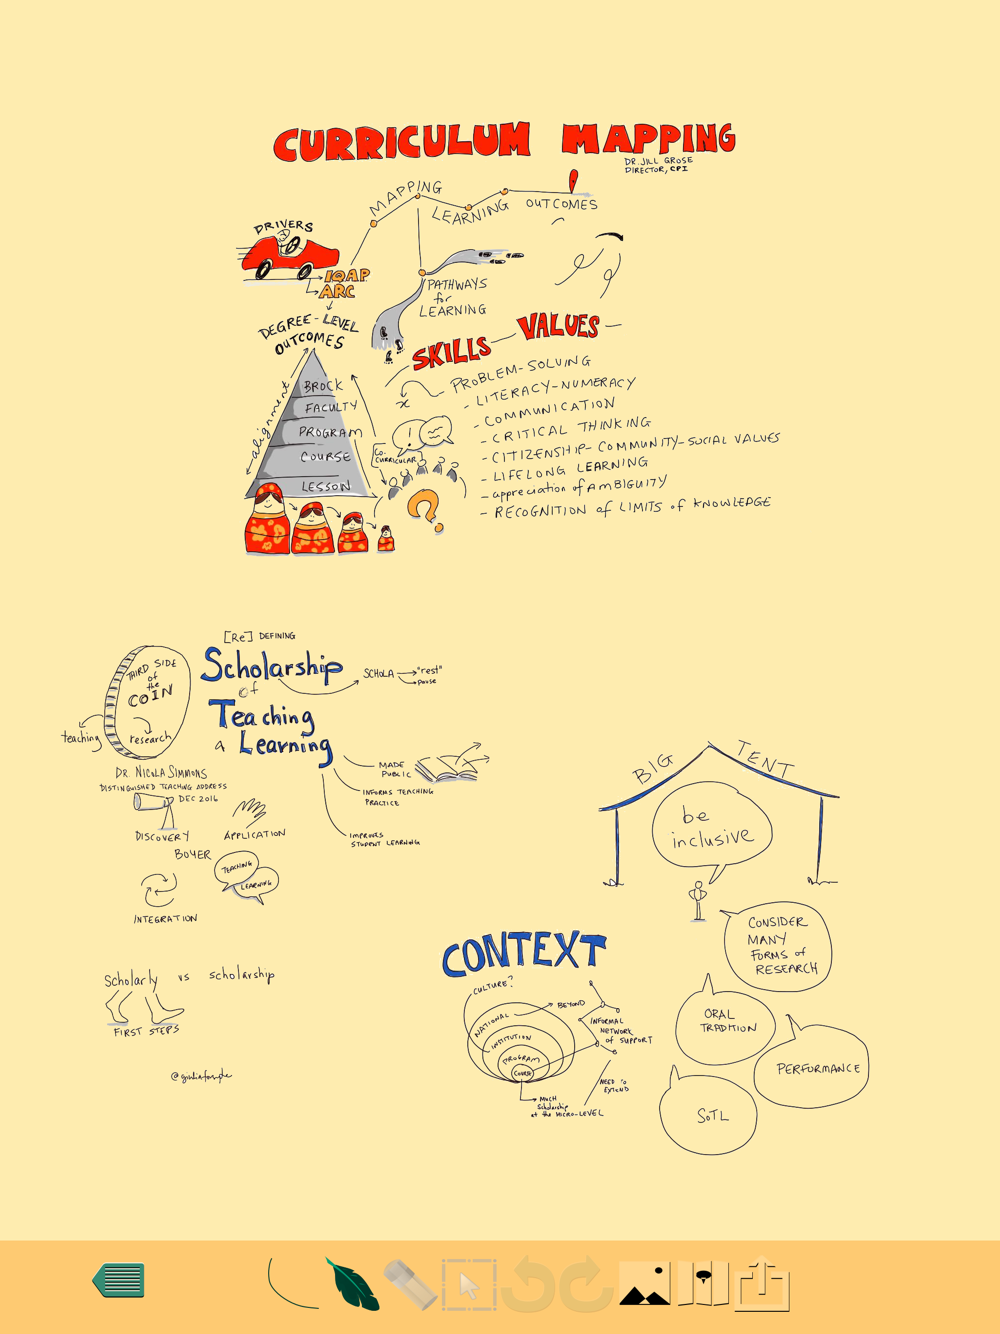 CURRICULUM MAPPING
DR. JILL GROSE
DIRECTOR, CPI
MAPPING
LEARNING
OUTCOMES
DRIVERS
IQAP
ARC
PATHWAYS
for
LEARNING
DEGREE-LEVEL
OUTCOMES
alignment
BROCK
FACULTY
PROGRAM
COURSE
LESSON
CO-
CURRICULAR
SKILLS
VALUES
PROBLEM-SOLVING
- LITERACY-NUMERACY
- COMMUNICATION
- CRITICAL THINKING
- CITIZENSHIP-COMMUNITY-SOCIAL VALUES
- LIFELONG LEARNING
- appreciation of AMBIGUITY
- RECOGNITION of LIMITS of KNOWLEDGE
[Re] DEFINING
Scholarship
of
Teaching
a Learning
SCHOLA
"rest"
pause
THIRD SIDE
of
the
COIN
teaching
research
DR. NICOLA SIMMONS
DISTINGUISHED TEACHING ADDRESS
DEC 2016
MADE
PUBLIC
INFORMS TEACHING
PRACTICE
IMPROVES
STUDENT LEARNING
DISCOVERY
APPLICATION
BOYER
TEACHING
LEARNING
INTEGRATION
Scholarly vs scholarship
FIRST STEPS
BIG TENT
be
inclusive
CONSIDER
MANY
FORMS of
RESEARCH
ORAL
TRADITION
PERFORMANCE
SOTL
CONTEXT
CULTURE?
NATIONAL
BEYOND
INSTITUTION
PROGRAM
COURSE
INFORMAL
NETWORK
of SUPPORT
NEED to
EXTEND
MUCH
Scholarship
at the MICRO-LEVEL
@giuliaforsythe